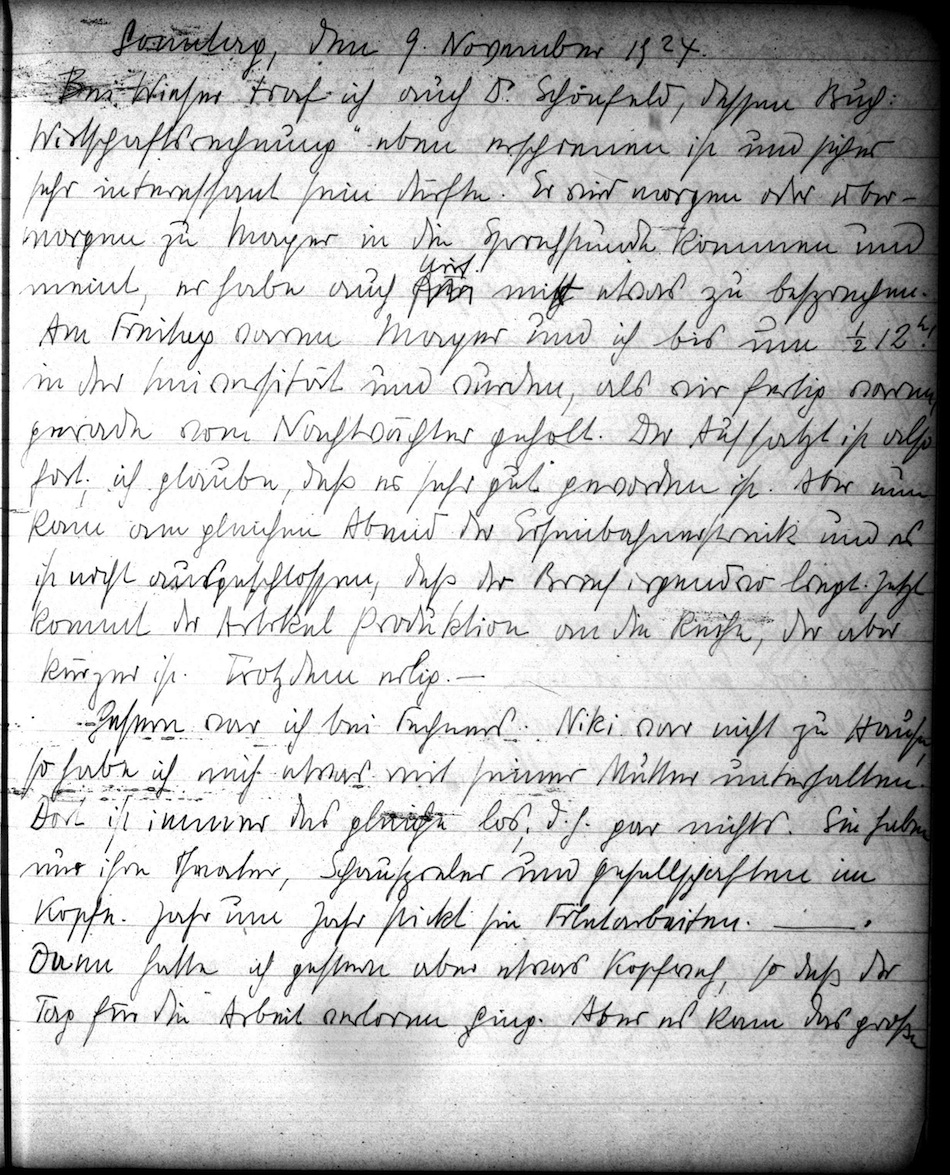 Sonntag, den 9. November 1924.
Bei Wieser traf ich auch D. Schönfeld, dessen Buch:
Wirtschaftsrechnung" eben erschienen ist und sicher
sehr interessant sein dürfte. Er wird morgen oder über-
morgen zu Mayer in die Sprechstunde kommen und
meint, er habe auch mit etwas zu besprechen.
Am Freitag waren Mayer und ich bis um ½12h!
in der Universität und wurden, als wir fertig waren,
gerade vom Nachtwächter geholt. Der Aufsatz ist also
fort; ich glaube, daß er sehr gut geworden ist. Aber nun
kam am gleichen Abend der Eisenbahnerstreik und es
ist nicht ausgeschlossen, daß der Brief irgendwo liegt. Jetzt
kommt der Artikel Produktion an die Reihe, der aber
kürzer ist. Trotzdem eilig. —
Gestern war ich bei Fechners. Niki war nicht zu Hause,
so habe ich mich etwas mit seiner Mutter unterhalten.
Dort ist immer das gleiche los, d.h. gar nichts. Sie haben
nur ihre Theater, Schauspieler und Gesellschaften im
Kopfe. Jahr um Jahr stickt sie Filetarbeiten. —.
Dann hatte ich gestern aber etwas Kopfweh, so daß der
Tag für die Arbeit verloren ging. Aber es kam das große